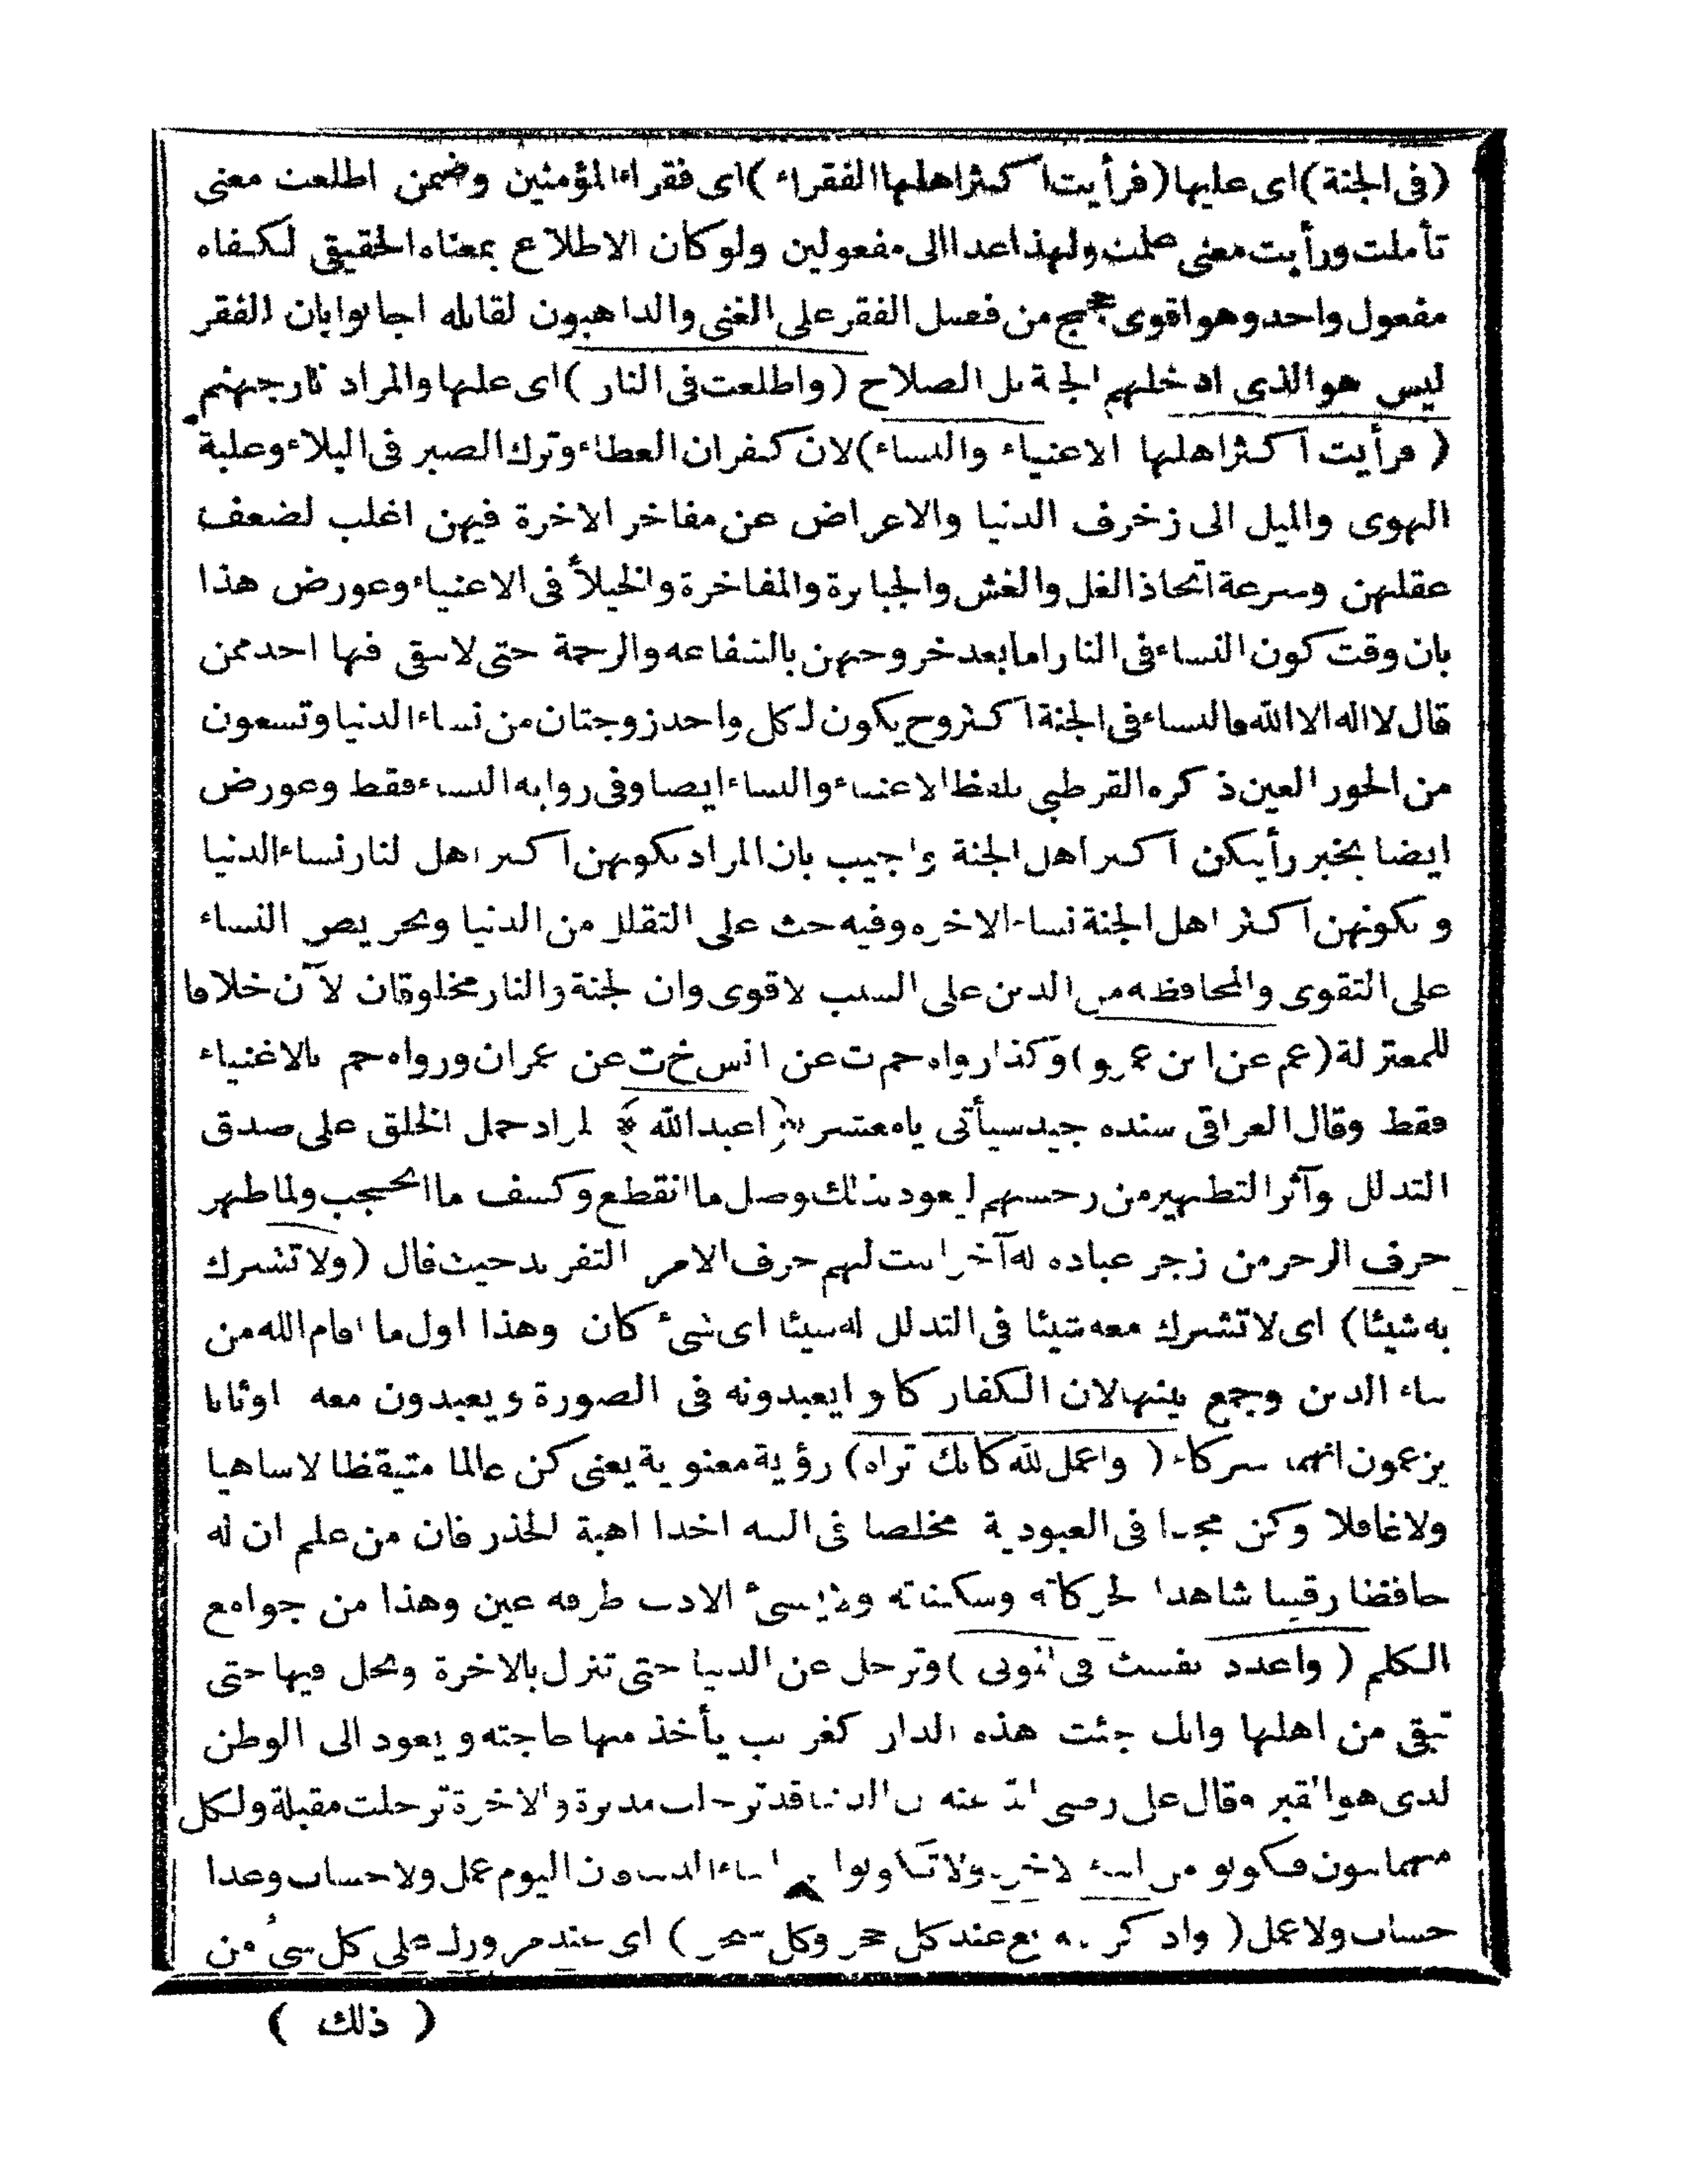 (فى الجنة) اى عليها (فرأيت اكثر اهلها الفقراء) اى فقراء المؤمنين وضمن اطلعت معنى
تأملت ورأيت معنى علمت ولهذا عدا الى مفعولين ولو كان الاطلاع بمعناه الحقيقى لكفاه
مفعول واحد وهو اقوى حجج من فضل الفقر على الغنى والذاهبون لقابله اجابوا بان الفقر
ليس هو الذى ادخلهم الجنة بل الصلاح (واطلعت فى النار) اى عليها والمراد نار جهنم
(فرأيت اكثر اهلها الاغنياء والنساء) لان كفران العطاء وترك الصبر فى البلاء وغلبة
الهوى والميل الى زخرف الدنيا والاعراض عن مفاخر الاخرة فيهن اغلب لضعف
عقلهن وسرعة اتخاذ الغل والغش والجبابرة والمفاخرة والخيلأ فى الاغنياء وعورض هذا
بان وقت كون النساء فى النار اما بعد خروجهن بالشفاعه والرحمة حتى لا يبقى فيها احد ممن
قال لا اله الا الله فالنساء فى الجنة اكثر وح يكون لكل واحد زوجتان من نساء الدنيا وتسعون
من الحور العين ذكره القرطبى بلفظ الاغنياء والنساء ايضا وفى روايه النساء فقط وعورض
ايضا بخبر رأيتكن اكثر اهل الجنة واجيب بان المراد بكونهن اكثر اهل النار نساء الدنيا
وبكونهن اكثر اهل الجنة نساء الاخره وفيه حث على التقلل من الدنيا وتحريص النساء
على التقوى والمحافظه من الدين على السبب الاقوى وان الجنة والنار مخلوقان لآن خلافا
للمعتزلة (عم عن ابن عمرو) وكذا رواه حم ت عن انس خ ت عن عمران ورواه حم بالاغنياء
فقط وقال العراقى سنده جيد سيأتى يا معشر ﴿اعبد الله﴾ المراد حمل الخلق على صدق
التذلل وآثر التطهير من رجسهم ليعود بذلك وصل ما انقطع وكشف ما انحجب ولما ظهر
حرف الزجر من زجر عباده له آخر اثبت لهم حرف الامر التفريد حيث قال (ولا تشرك
به شيئا) اى لا تشرك معه شيئا فى التذلل له شيئا اى شىء كان وهذا اول ما اقام الله من
بناء الدين وجمع بينهما لان الكفار كانوا يعبدونه فى الصورة ويعبدون معه اوثانا
يزعمون انها شركاء (واعمل لله كانك تراه) رؤية معنوية يعنى كن عالما متيقظا لا ساهيا
ولا غافلا وكن مجدا فى العبودية مخلصا فى النية اخذا اهبة الحذر فان من علم ان له
حافظا رقيبا شاهدا لحركاته وسكناته ولا يسىء الادب طرفه عين وهذا من جوامع
الكلم (واعدد نفسك فى الموتى) وترحل عن الدنيا حتى تنزل بالاخرة وتحل فيها حتى
تبقى من اهلها وانك جئت هذه الدار كغريب يأخذ منها حاجته ويعود الى الوطن
الذى هو القبر وقال على رضى الله عنه ان الدنيا قد ترحلت مدبرة والاخرة ترحلت مقبلة ولكل
منهما بنون فكونوا من ابناء الاخرة ولا تكونوا من ابناء الدنيا فان اليوم عمل ولا حساب وغدا
حساب ولا عمل (واذكر الله تع عند كل حجر وكل شجر) اى عند مرورك على كل شىء من
( ذلك )